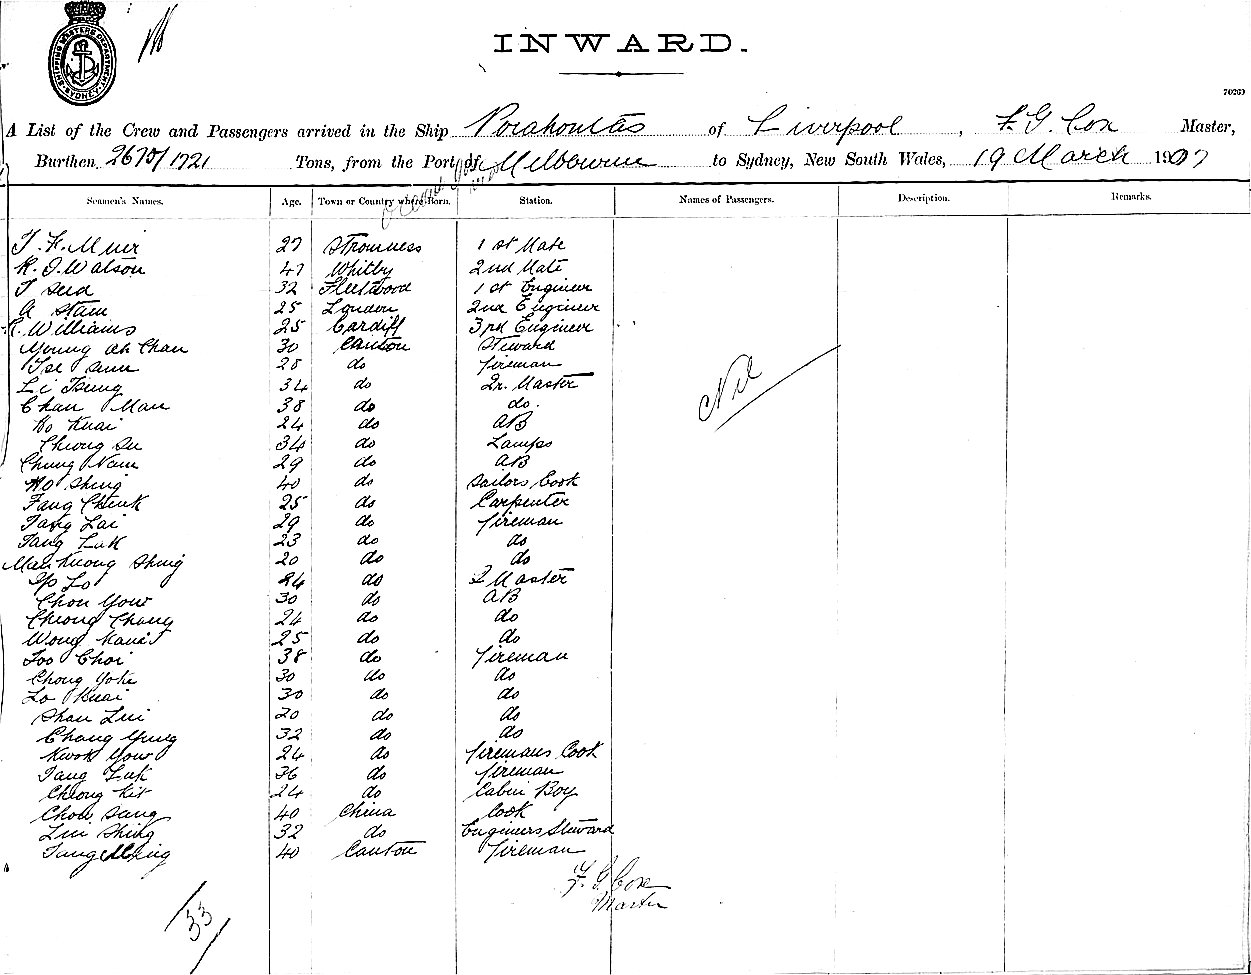 SHIPPING MASTERS DEPARTMENT SYDNEY
INWARD.
70269
A List of the Crew and Passengers arrived in the Ship Pocahontas of Liverpool, F. G. Cox Master,
Burthen 2675/1721 Tons, from the Port of Melbourne to Sydney, New South Wales, 19 March 1907
Seamen's Names. Age. Town or Country where Born. Station. Names of Passengers. Description. Remarks.
T. F. Muir 27 Stromness 1st Mate
R. J. Watson 47 Whitby 2nd Mate
T Seed 32 Fleetwood 1st Engineer
A Stam 25 London 2nd Engineer
E. Williams 25 Cardiff 3rd Engineer
Young Ah Chan 30 Canton Steward
Tse Sam 28 do Fireman
Li Tseung 34 do Qr. Master
Chan Man 38 do do.
Ho Kuai 24 do AB
Cheong Su 34 do Lamps
Chung Nam 29 do AB
Ho Shing 40 do Sailors Cook
Fang Cheuk 25 do Carpenter
Tang Lai 29 do Fireman
Tang Luk 23 do do
Man Kuong Shing 20 do do
Ip Lo 24 do Q Master
Chou Yow 30 do AB
Cheong Chang 24 do do
Wong 25 do do
Foo Choi 38 do Fireman
Chong Yoke 30 do do
Lo Kuai 30 do do
Shau Lui 20 do do
Chang Yung 32 do do
Kwok Yow 24 do Firemans Cook
Tang Luk 36 do Fireman
Cheong Kit 24 do Cabin Boy
Chou Sang 40 China Cook
Lui Shing 32 do Engineers Steward
Tung 40 Canton Fireman
Nil
F. G. Cox
Master
33